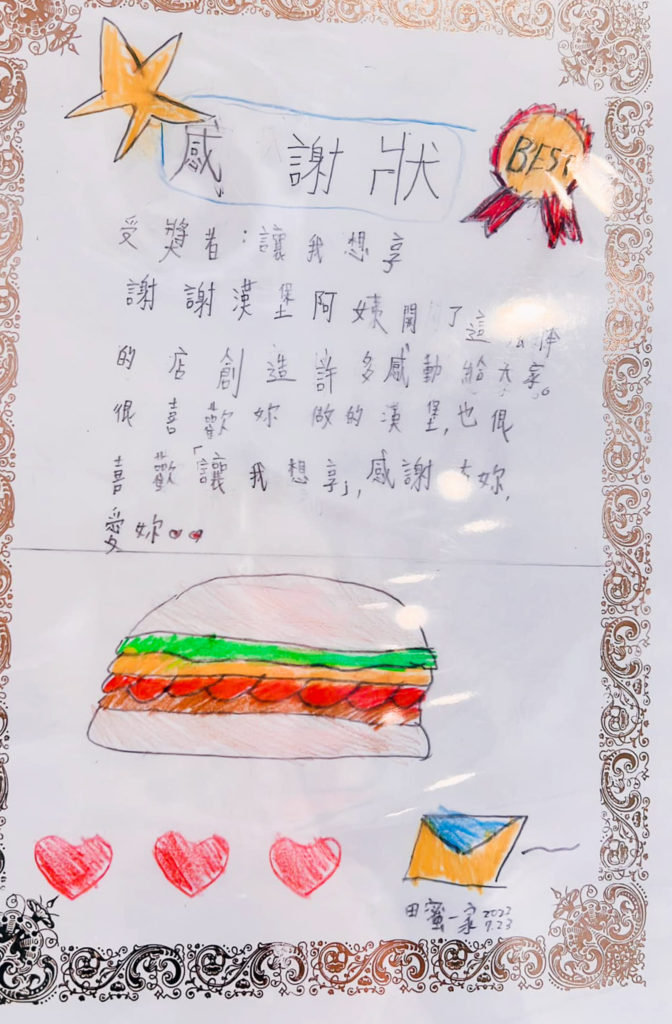 感謝狀
BEST
受獎者：讓我想享
謝謝漢堡阿姨開了這 
的店創造許多感動給大家。
很喜歡妳做的漢堡,也很
喜歡「讓我想享」,感謝 妳,
愛妳
田蜜一家 2023
9.23